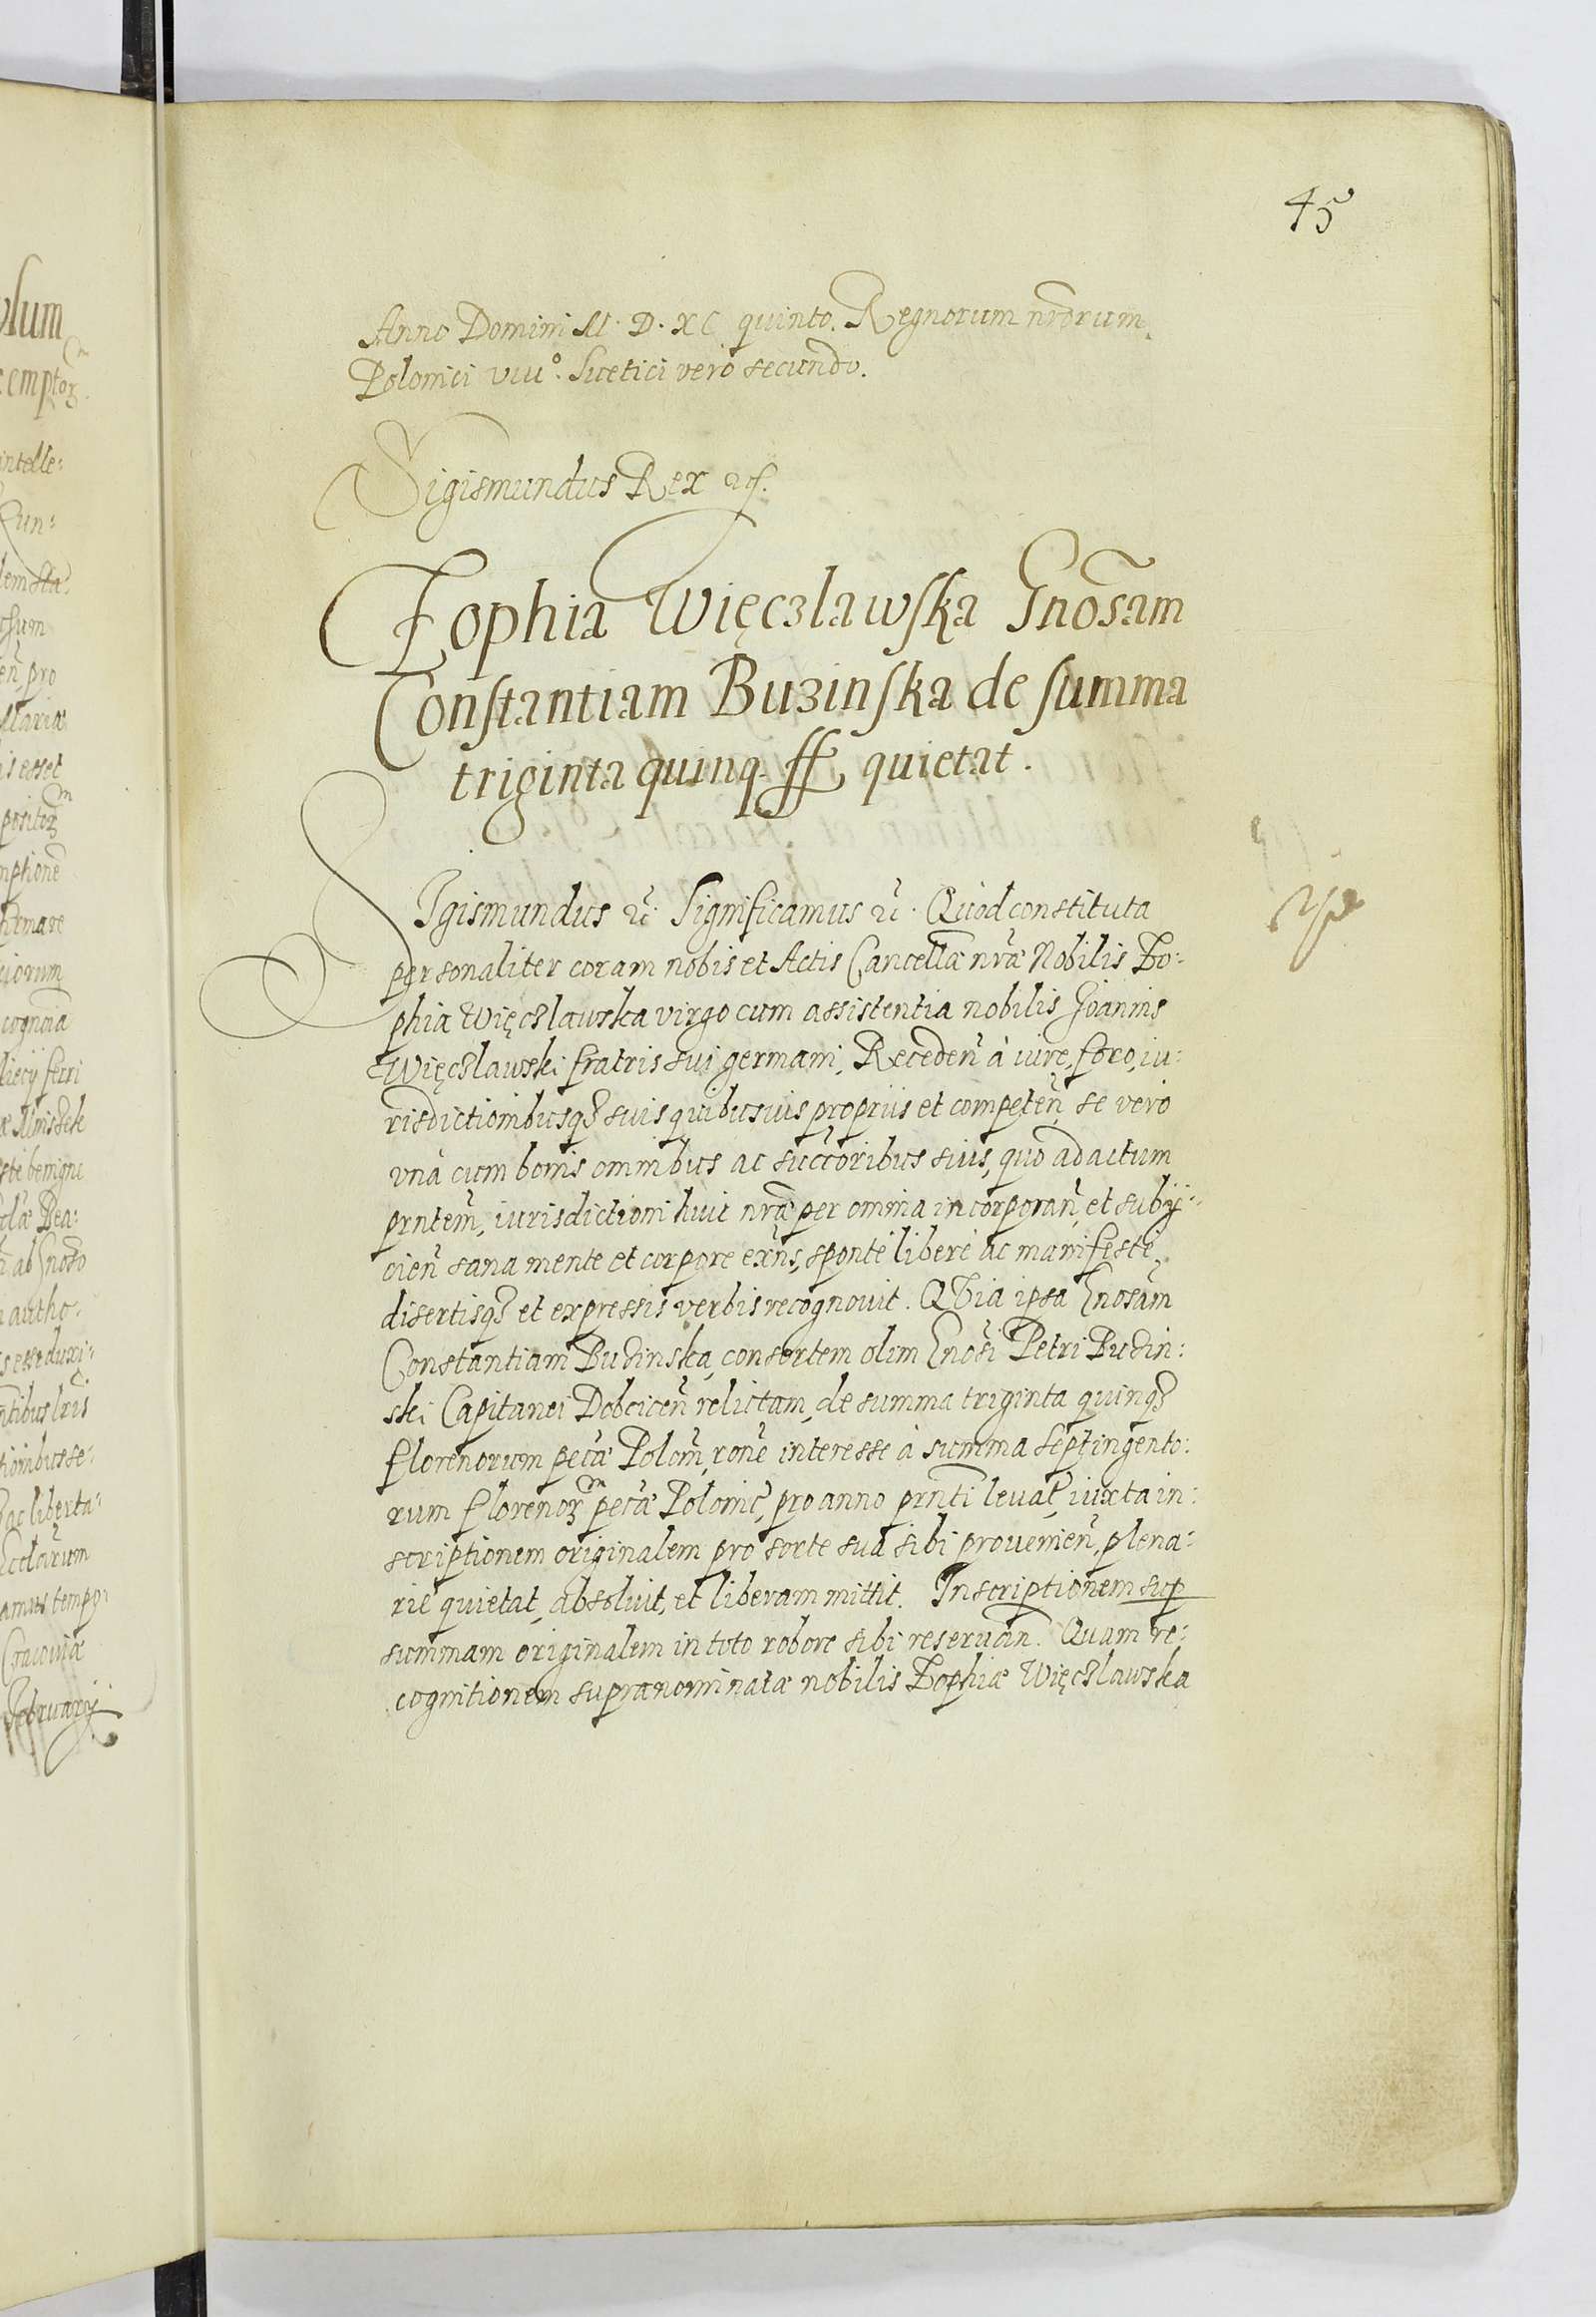 45
Anno Domini M. D. XC quinto. Regnorum nr̃orum
Polonici viiiº. Suetici vero secundo.
Sigismundus Rex
Zophia Więczlawska Gnõsam
Constantiam Buzinska de summa
triginta quinq. ff quietat.
SIgismundus &c̃. Significamus &c̃. Quod constituta
personaliter coram nobis et Actis Cancellæ nr̃æ Nobilis Zo:
phia Więczlawska virgo cum assistentia nobilis Joannis
Więczlawski fratris sui germani, Receden̄ à iure, foro, iu:
risdictionibusq3 suis quibusuis propriis et competen̄ se vero
vnà cum bonis omnibus ac succ̃oribus suis, quo ad actum
prñtem, iurisdictioni huic nr̃æ per omnia incorporan̄, et subij:
cien̄ sana mente et corpore exñs, sponte libere ac manifeste
disertisq3 et expressis verbis recognouit. QVia ipsa Gnosãm
Constantiam Budzinska consortem olim Gnosĩ Petri Budzin:
ski Capitanei Dobcicen̄ relictam, de summa triginta quinq3
florenorum pecã Polon̄, rõne interesse à summa septingento:
rum florenor̃ pecã Polonic̃, pro anno prñti leuat, iuxta in:
scriptionem originalem pro sorte sua sibi prouenien̄, plena:
rie quietat, absoluit, et liberam mittit. Inscriptionem sup
summam originalem in toto robore sibi reseruan̄. Quam re:
cognitionem supranominatæ nobilis Zophiæ Więczlawska